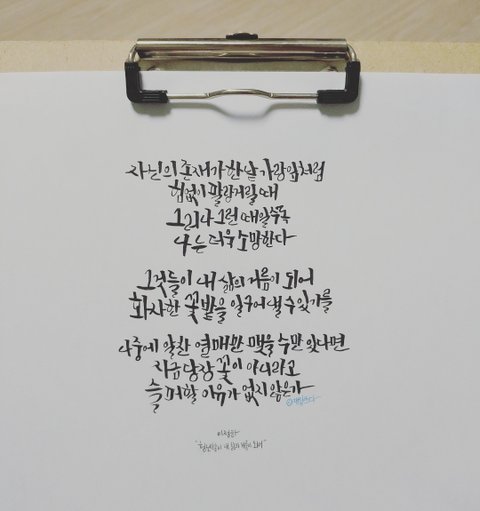 자신의 존재가 한낱 가랑잎처럼
힘없이 팔랑거릴 때
그러나 그런 때일수록
나는 더욱 소망한다
그것들이 내 삶의 거름이 되어
화사한 꽃밭을 일구어 낼 수 있기를
나중에 알찬 열매만 맺을 수만 있다면
지금 당장 꽃이 아니라고
슬퍼할 이유가 없지 않은가
이정하